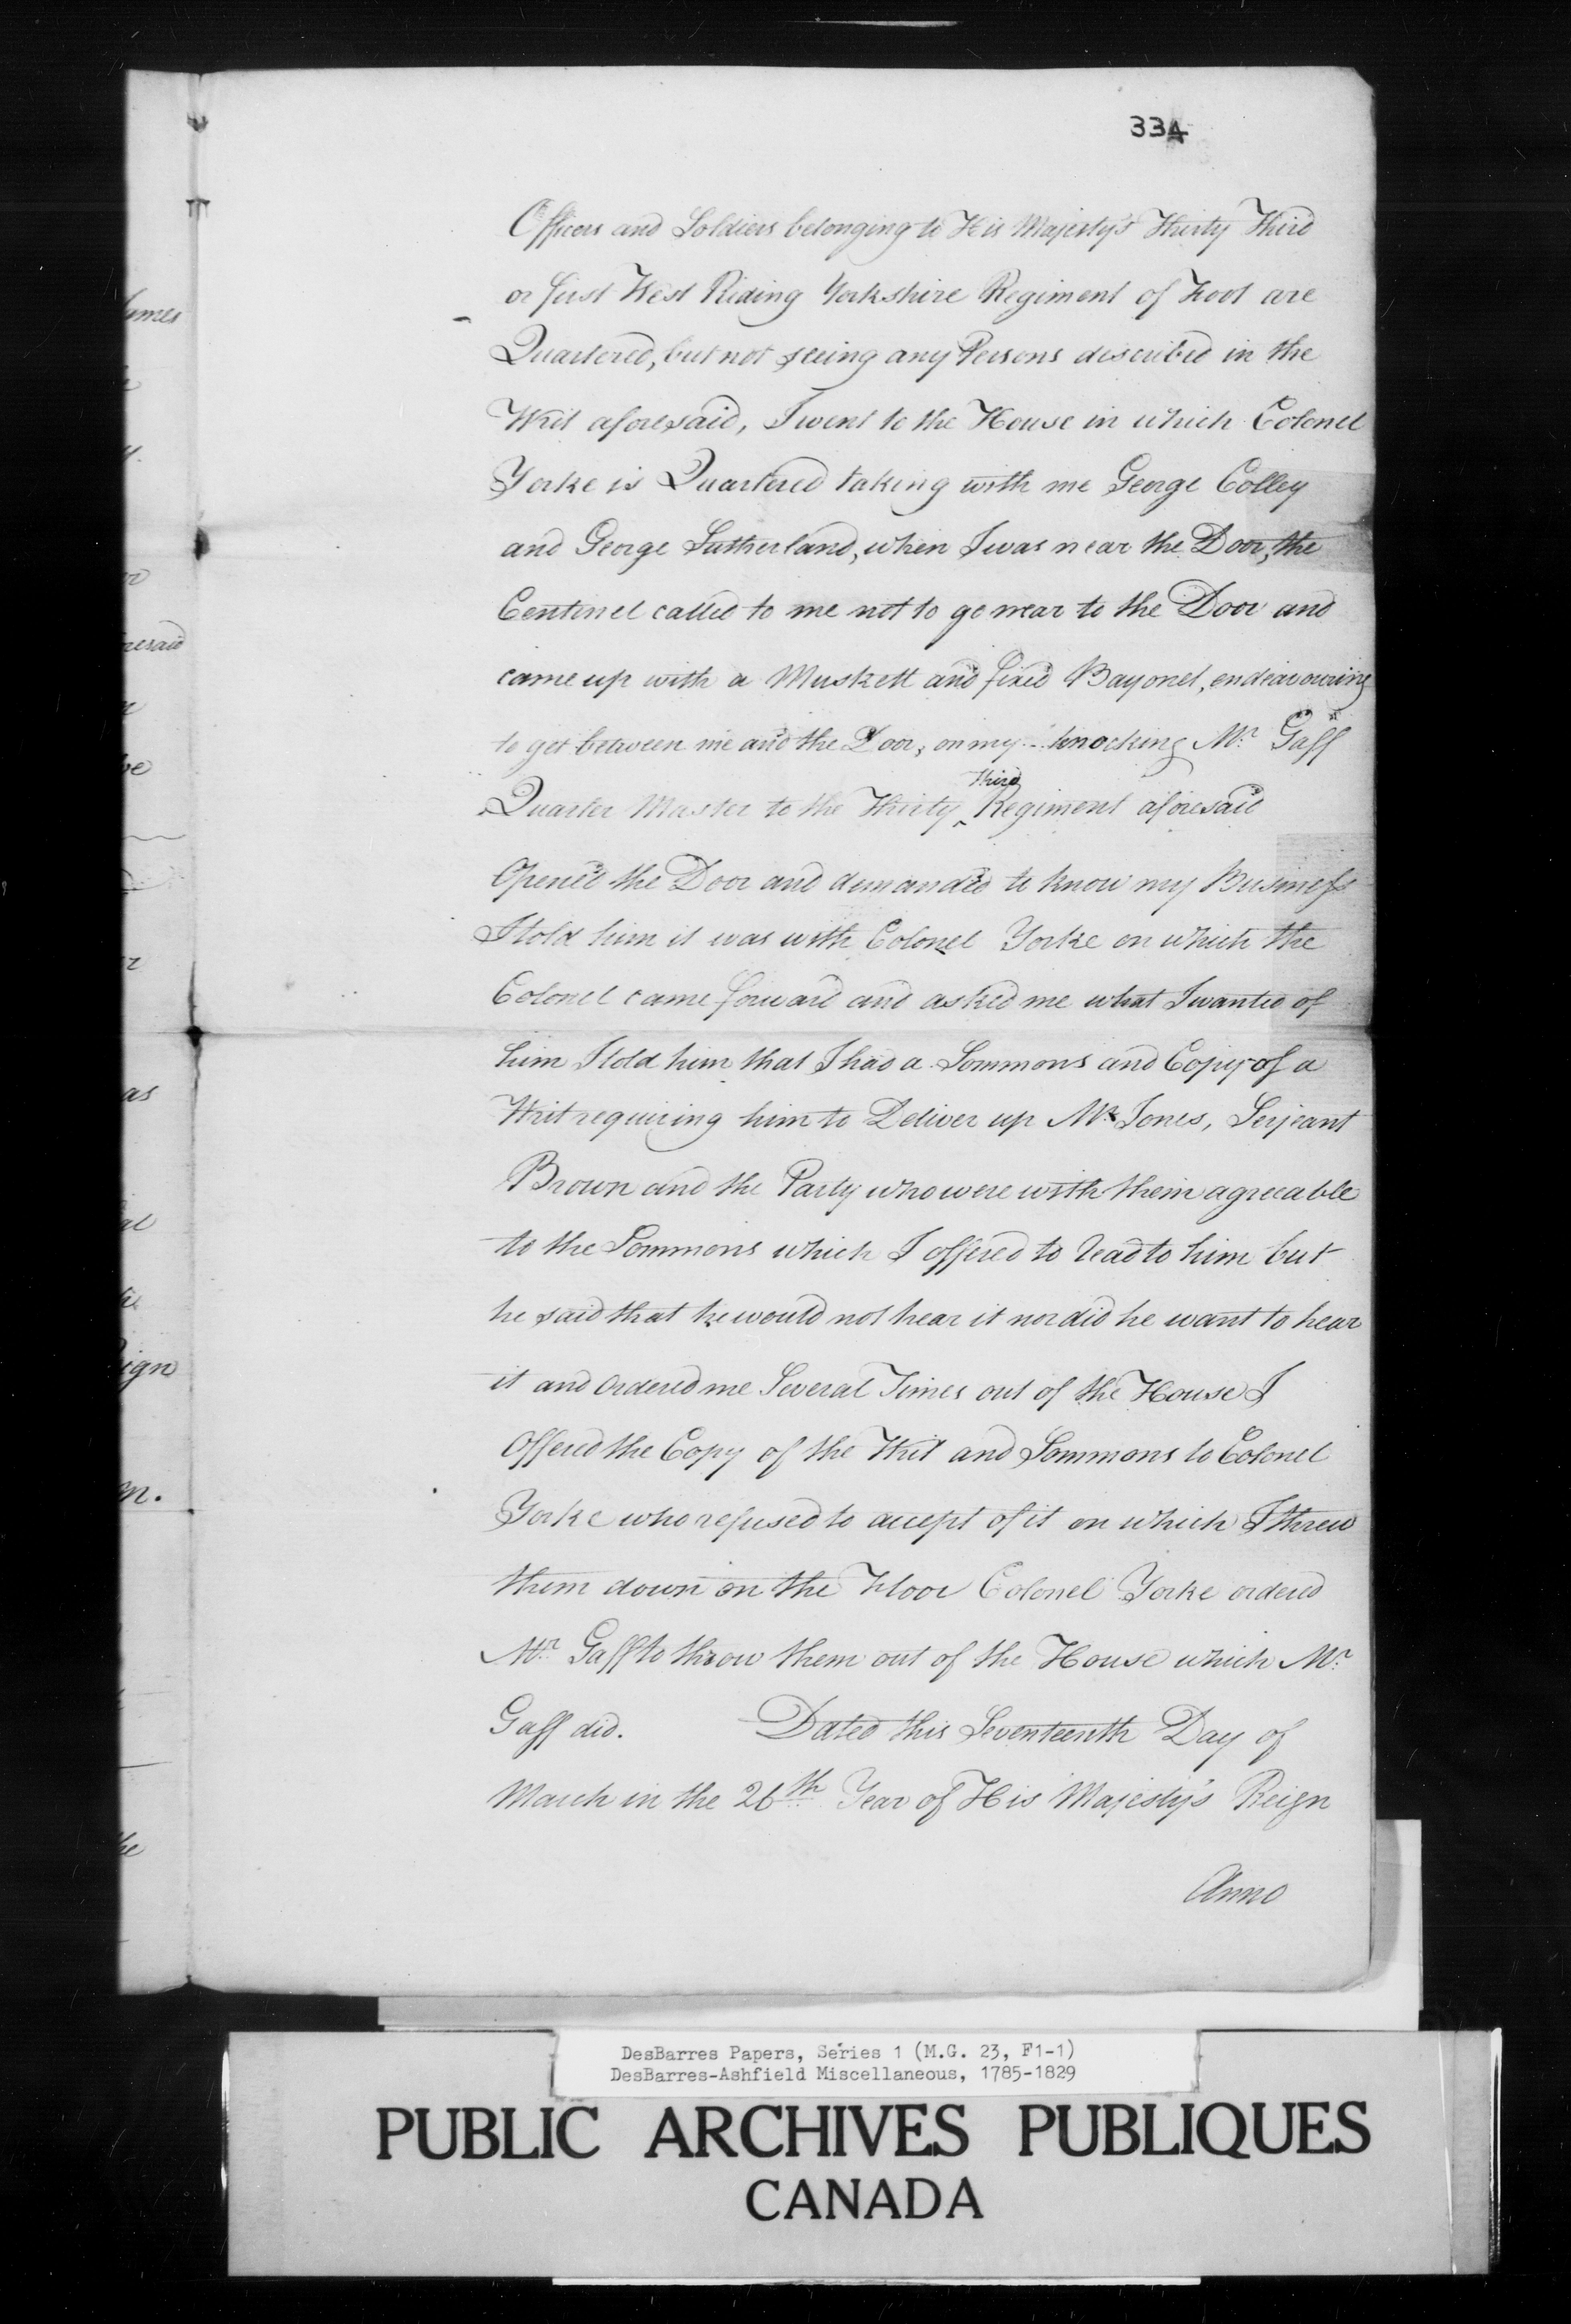 334
Officers and Soldiers belonging to His Majesty's Thirty Third
or first West Riding Yorkshire Regiment of Foot are
Quartered, but not seeing any Persons discribed in the
Writ aforesaid, I went to the House in which Colonel
Yorke is Quartered taking with me George Colley
and George Sutherland, when I was near the Door, the
Centinel called to me not to go near to the Door and
came up with a Muskett and fixed Bayonet, endeavouring
to get between me and the Door, on my knocking Mr. Gaff
Quarter Master to the Thirty Third Regiment aforesaid
Opened the Door and demanded to know my Business
I told him it was with Colonel Yorke on which the
Colonel came forward and asked me what I wanted of
him I told him that I had a Sommons and Copy of a
Writ requiring him to Deliver up Mr. Jones, Serjeant
Brown and the Party who were with them agreeable
to the Sommons which I offered to read to him but
he said that he would not hear it nor did he want to hear
it and ordered me Several Times out of the House I
Offered the Copy of the Writ and Sommons to Colonel
Yorke who refused to accept of it on which I threw
them down on the Floor Colonel Yorke ordered
Mr. Gaff to throw them out of the House which Mr.
Gaff did. Dated this Seventeenth Day of
March in the 26th Year of His Majesty's Reign
Anno
resaid
as
ign
DesBarres Papers, Series 1 (M.G. 23, F1-1)
DesBarres-Ashfield Miscellaneous, 1785-1829
PUBLIC ARCHIVES PUBLIQUES
CANADA